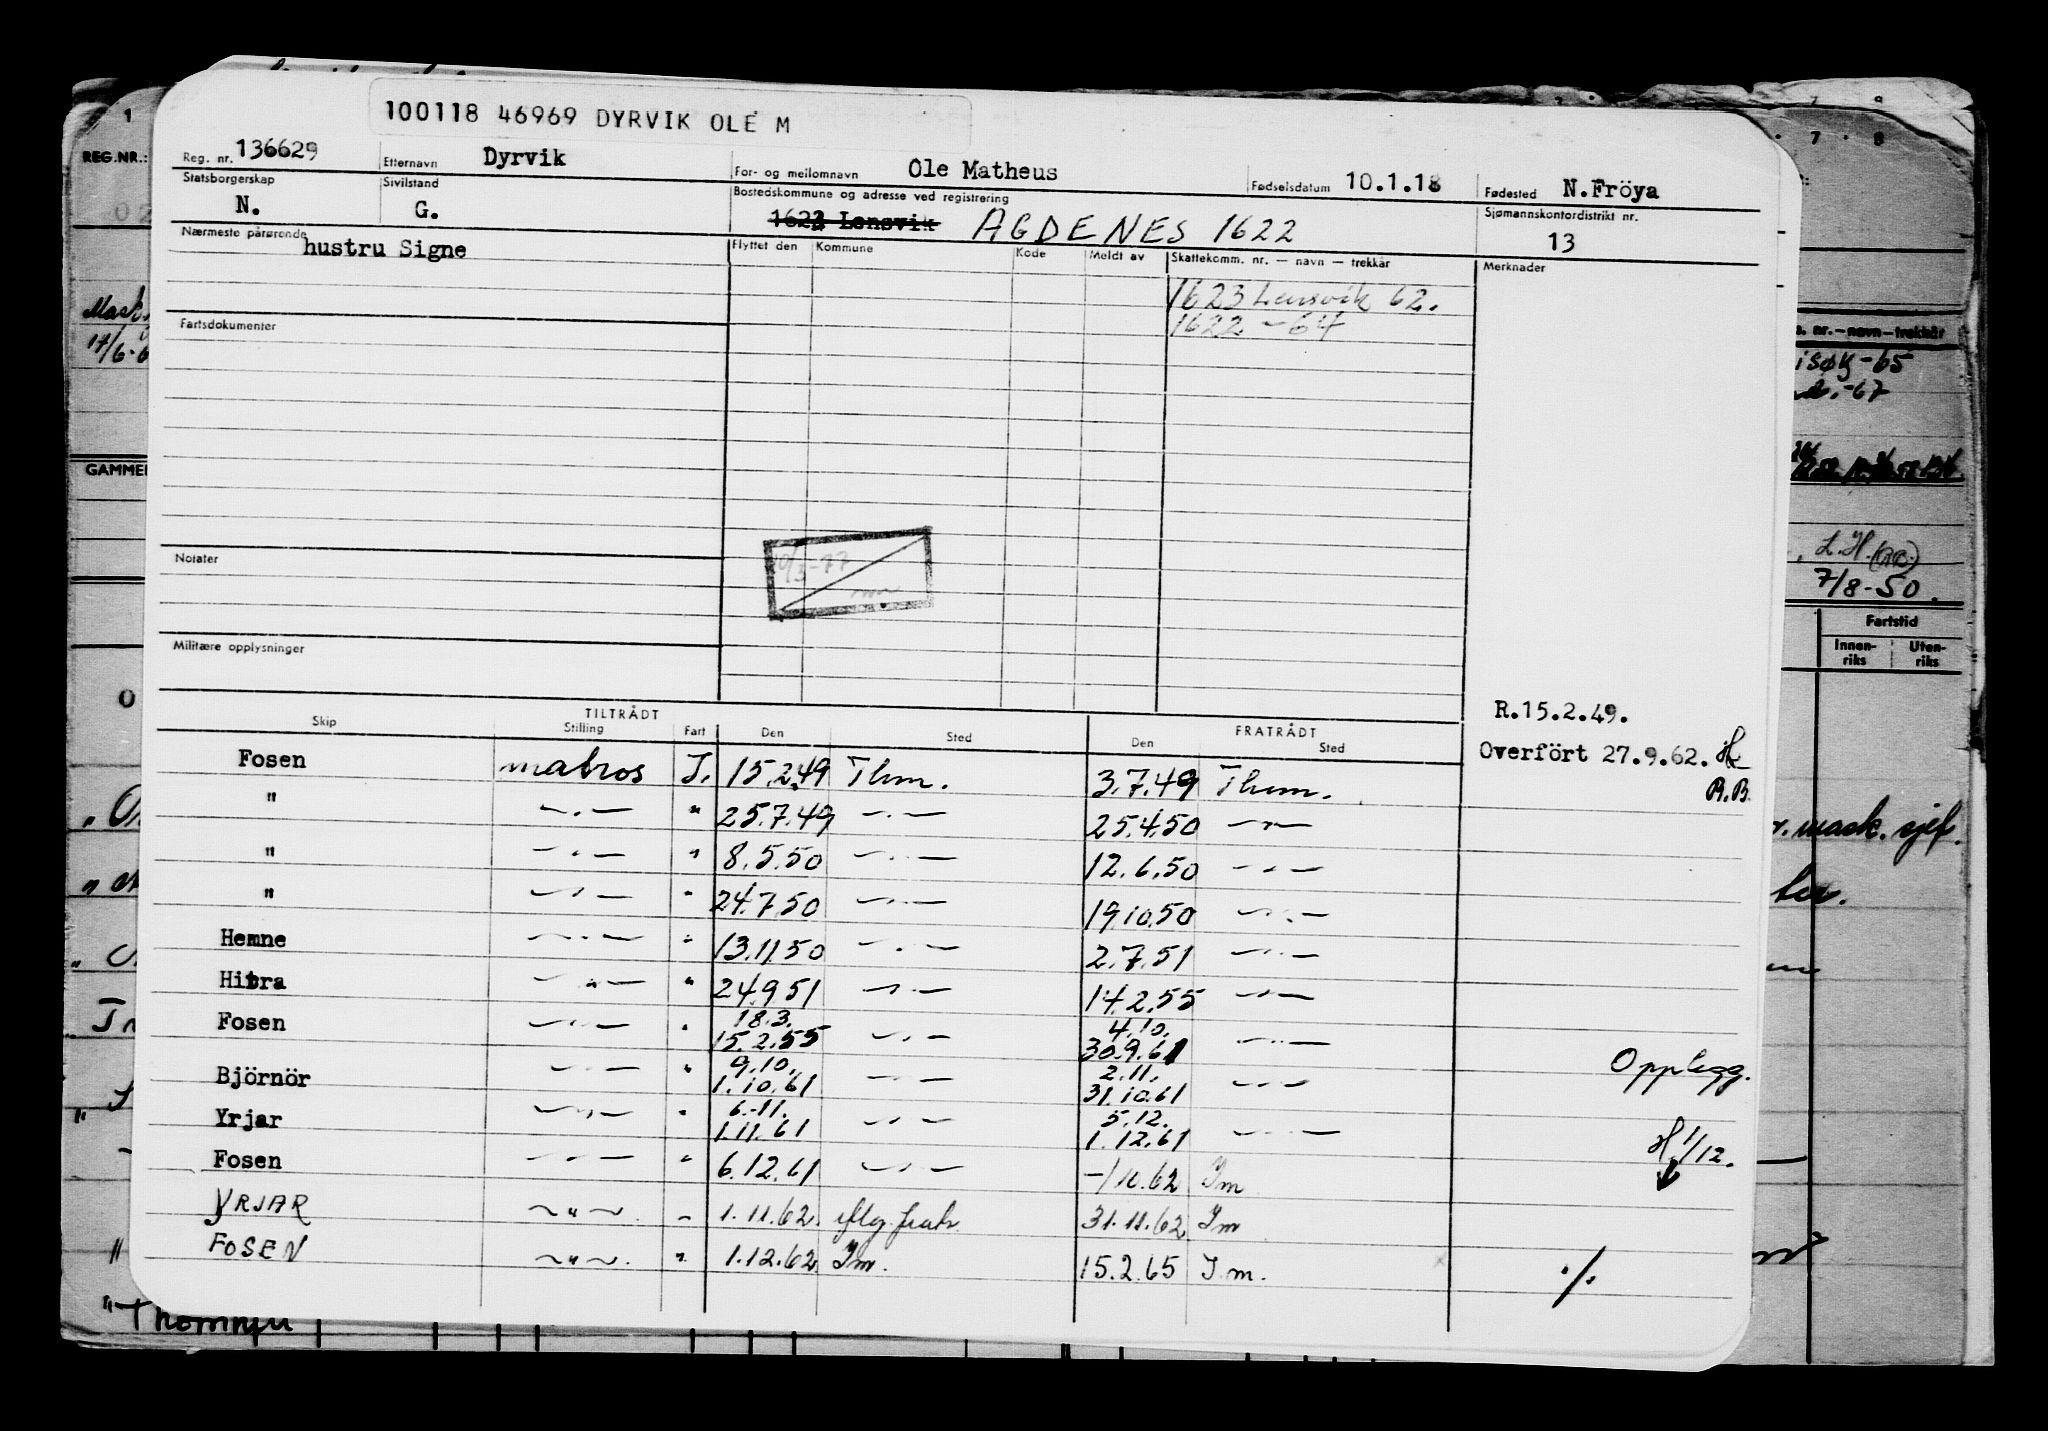 100118 46969 DYRVIK OLE M
Reg. nr. 136629 Etternavn Dyrvik For- og mellomnavn Ole Matheus Fødselsdatum 10.1.18 Fødested N.Fröya
Statsborgerskap N. Sivilstand G. Bostedskommune og adresse ved registrering Lensvik AGDENES 1622 Sjømannskontordistrikt nr. 13
Nærmeste pårørende hustru Signe Flyttet den Kommune Kode Meldt av Skattekomm. nr. — navn — trekkår Merknader
1623 Lensvik 62.
1622 - 64
Fartsdokumenter
Notater
Militære opplysninger
R.15.2.49.
TILTRÅDT FRATRÅDT
Skip Stilling Fart Den Sted Den Sted
Overfört 27.9.62. R.B.
Fosen matros I. 15.2.49 Thm. 3.7.49 Thm.
" —.— " 25.7.49 —.— 25.4.50 —"—
" —"— " 8.5.50 —.— 12.6.50 —.—
" —"— " 24.7.50 —.— 19.10.50 —.—
Hemne —.— " 13.11.50 —.— 2.7.51 —.—
Hitra —"— " 24.9.51 —.— 14.2.55 —"—
18.3. 4.10.
Fosen —.— " 15.2.55 —.— 30.9.61 —.—
9.10. 2.11.
Björnör —.— " 1.10.61 —.— 31.10.61 —.— Opplegg.
6.11. 5.12.
Yrjar —"— " 1.11.61 —.— 1.12.61 —.— 1/12.
Fosen —.— " 6.12.61 —.— -/10.62
YRJAR —"— " 1.11.62. 31.11.62
FOSEN —"— " 1.12.62 15.2.65 ./.
REG.NR.:
Mask.
GAMMEL
nr.—navn—trekkår
-65
-67
L.H.
7/8-50.
Fartstid
Innen-riks Uten-riks
mask. sjef.